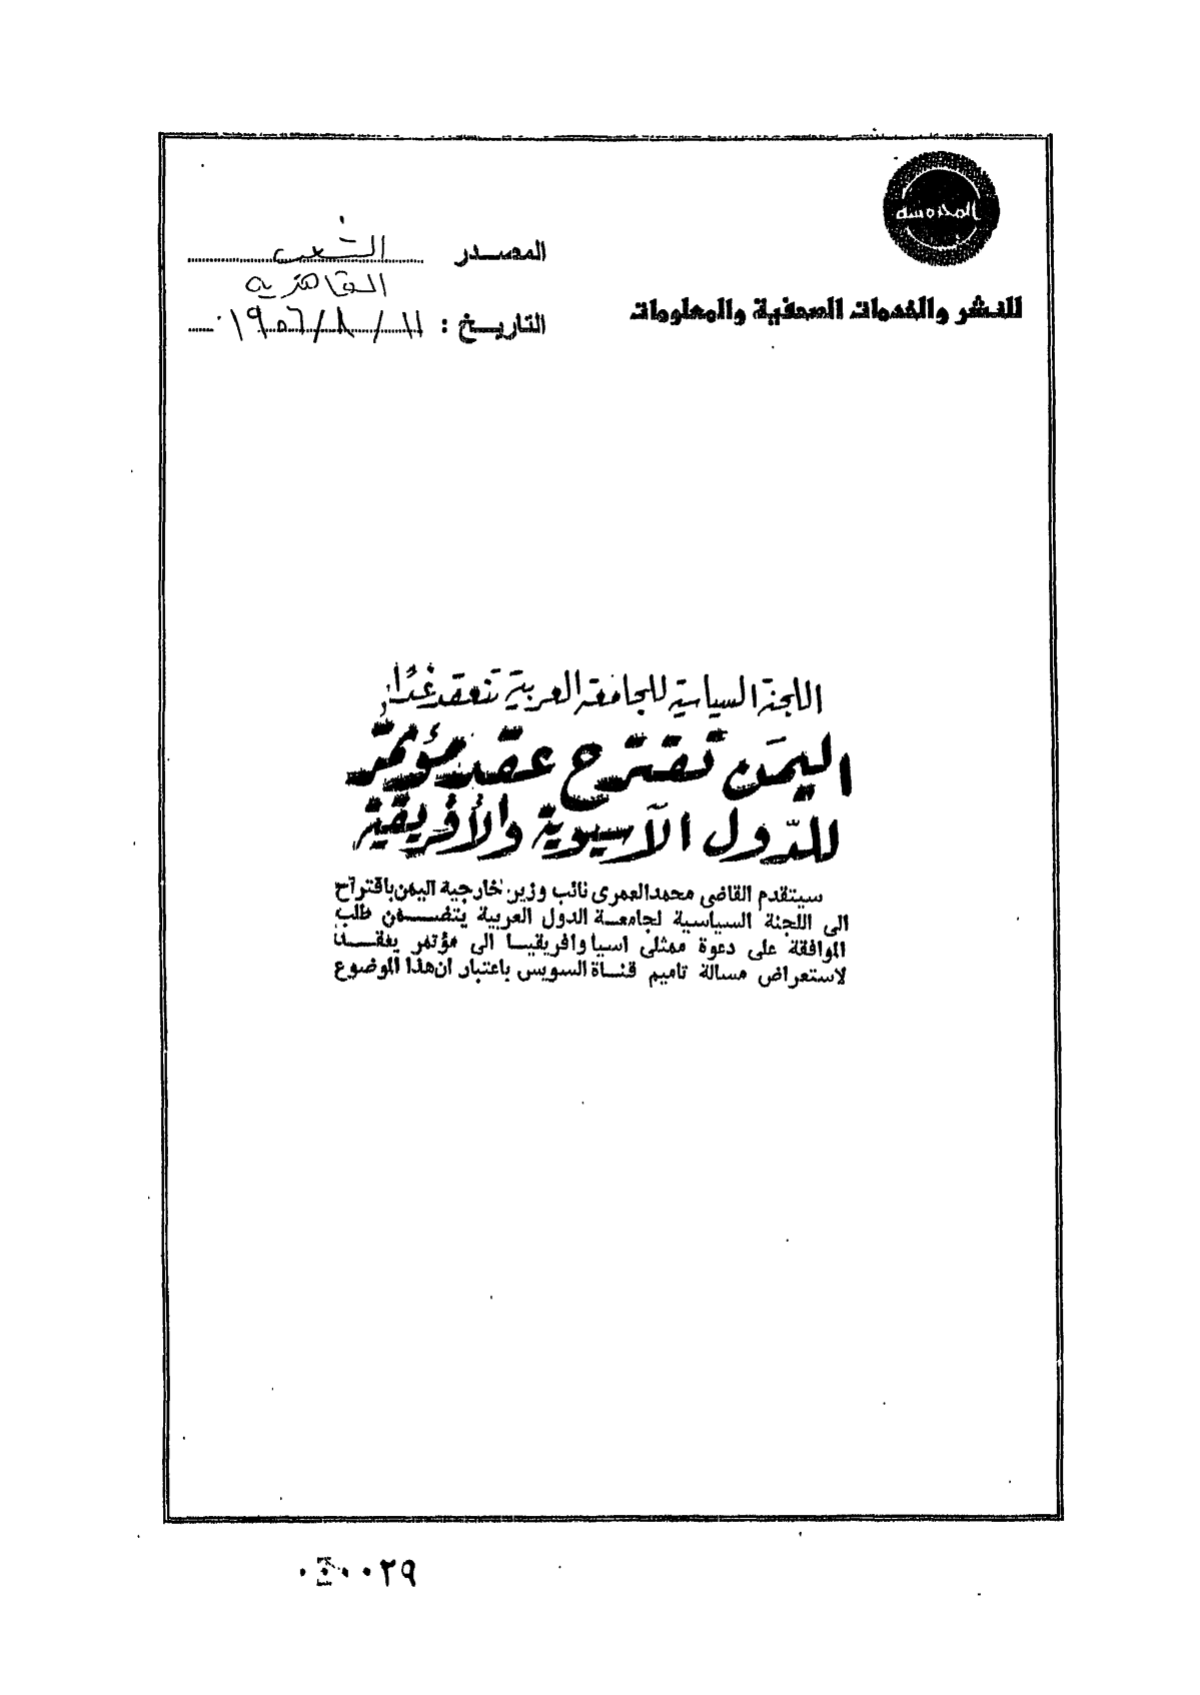 المحروسة
للنشر والخدمات الصحفية والمعلومات
المصدر الشعب
القاهرية
التاريخ : ١١/٨/١٩٥٦
اللجنة السياسية للجامعة العربية تنعقد غدًا
اليمن تقترح عقد مؤتمر
للدّول الآسيوية والأفريقية
سيتقدم القاضى محمد العمرى نائب وزير خارجية اليمن باقتراح
الى اللجنة السياسية لجامعة الدول العربية يتضمن طلب
الموافقة على دعوة ممثلى اسيا وافريقيا الى مؤتمر يعقد
لاستعراض مسالة تاميم قناة السويس باعتبار ان هذا الموضوع